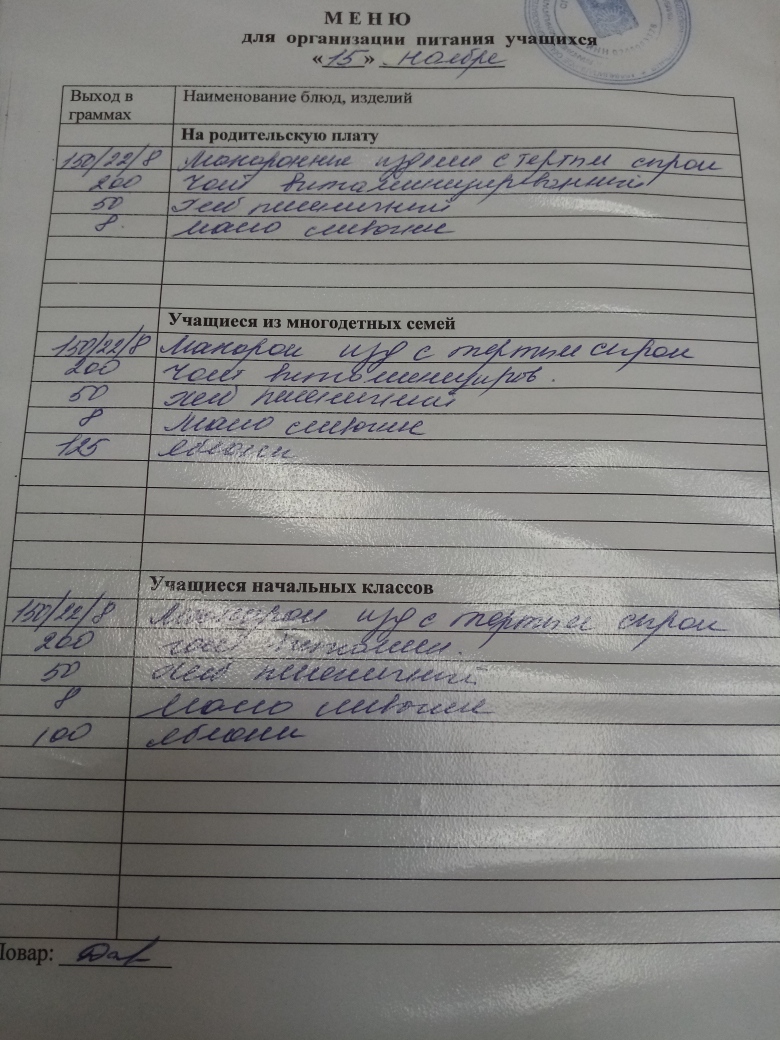 МЕНЮ
для организации питания учащихся
«15» Ноябре
Выход в граммах Наименование блюд, изделий
На родительскую плату
150/22/8 Макаронные изделие с тертым сыром
200 Чай витаминизированный
50 Хлеб пшеничный
8 Масло сливочн
Учащиеся из многодетных семей
150/22/8 Макарон изд с тертым сыром
200 Чай витаминизиров.
50 Хлеб пшеничный
8 Масло сливочн
125 яблоки
Учащиеся начальных классов
150/22/8 Макарон изд с тертым сыром
200 Чай витамин.
50 Хлеб пшеничный
8 Масло сливочн
100 яблоки
Повар: